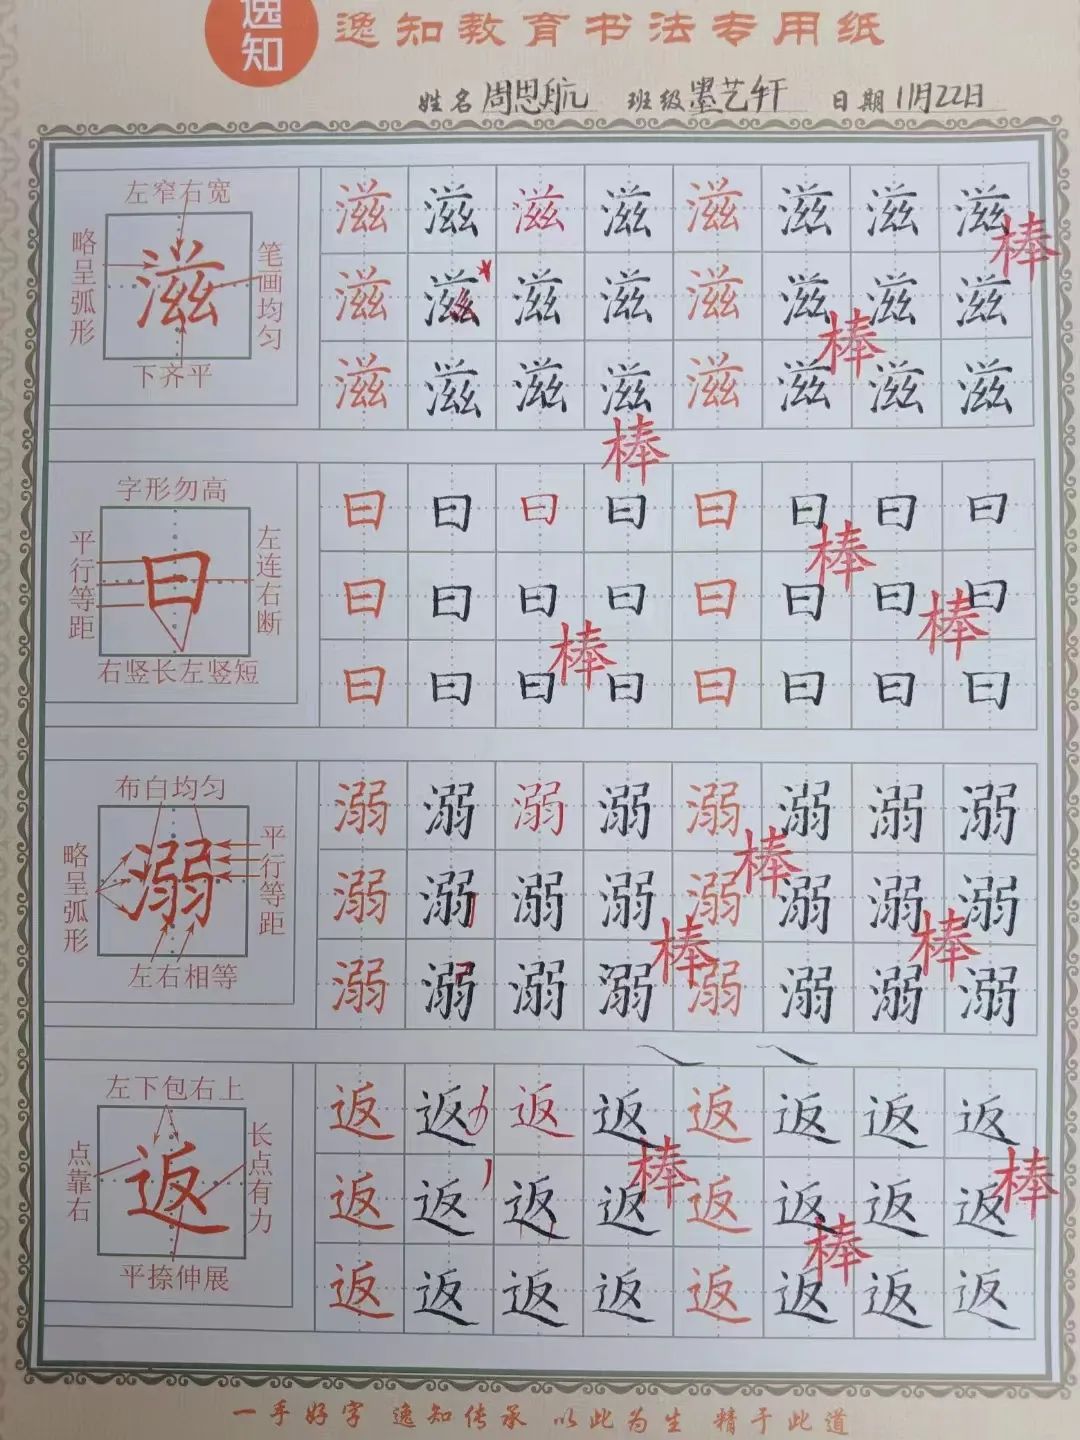 逸知 逸知教育书法专用纸
姓名 周思航 班级 墨艺轩 日期 11月22日
左窄右宽
略呈弧形
滋
笔画均匀
下齐平
滋 滋 滋 滋 滋 滋 滋 滋
棒
滋 滋 滋 滋 滋 滋 滋 滋
棒
滋 滋 滋 滋 滋 滋 滋 滋
棒
字形勿高
平行等距
曰
左连右断
右竖长左竖短
曰 曰 曰 曰 曰 曰 曰 曰
棒
曰 曰 曰 曰 曰 曰 曰 曰
棒 棒
曰 曰 曰 曰 曰 曰 曰 曰
布白均匀
略呈弧形
溺
平行等距
左右相等
溺 溺 溺 溺 溺 溺 溺 溺
棒
溺 溺 溺 溺 溺 溺 溺 溺
棒 棒
溺 溺 溺 溺 溺 溺 溺 溺
左下包右上
点靠右
返
长点有力
平捺伸展
返 返 返 返 返 返 返 返
棒 棒
返 返 返 返 返 返 返 返
棒
返 返 返 返 返 返 返 返
一手好字 逸知传承 以此为生 精于此道